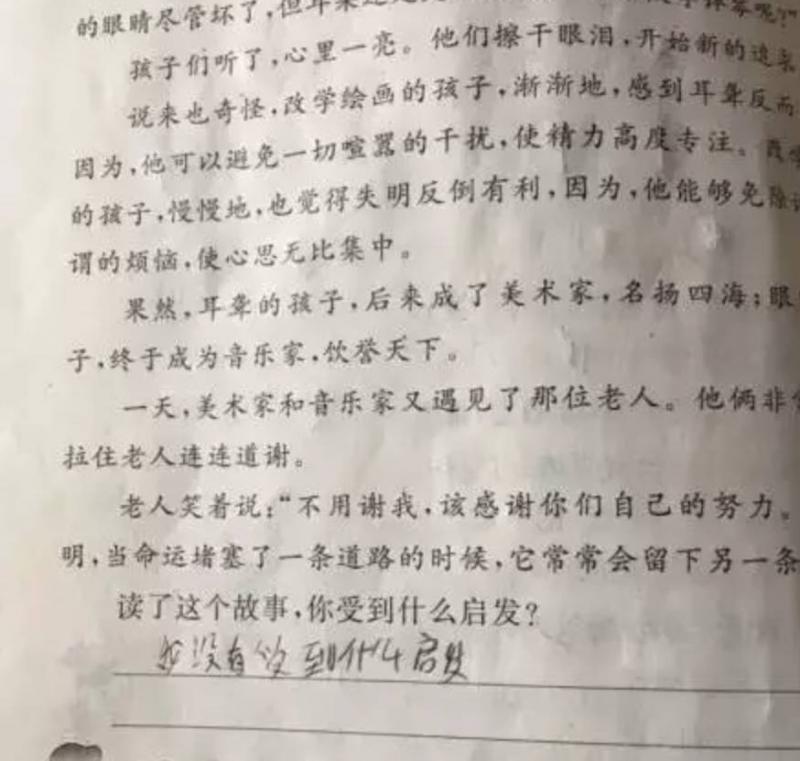 的眼睛尽管坏了,但耳朵还是
孩子们听了,心里一亮。他们擦干眼泪,开始新的追求
说来也奇怪,改学绘画的孩子,渐渐地,感到耳聋反而
因为,他可以避免一切喧嚣的干扰,使精力高度专注。
的孩子,慢慢地,也觉得失明反倒有利,因为,他能够免除
谓的烦恼,使心思无比集中。
果然,耳聋的孩子,后来成了美术家,名扬四海;眼
子,终于成为音乐家,饮誉天下。
一天,美术家和音乐家又遇见了那位老人。他俩非
拉住老人连连道谢。
老人笑着说:“不用谢我,该感谢你们自己的努力。
明,当命运堵塞了一条道路的时候,它常常会留下另一条
读了这个故事,你受到什么启发?
我没有受到什么启发